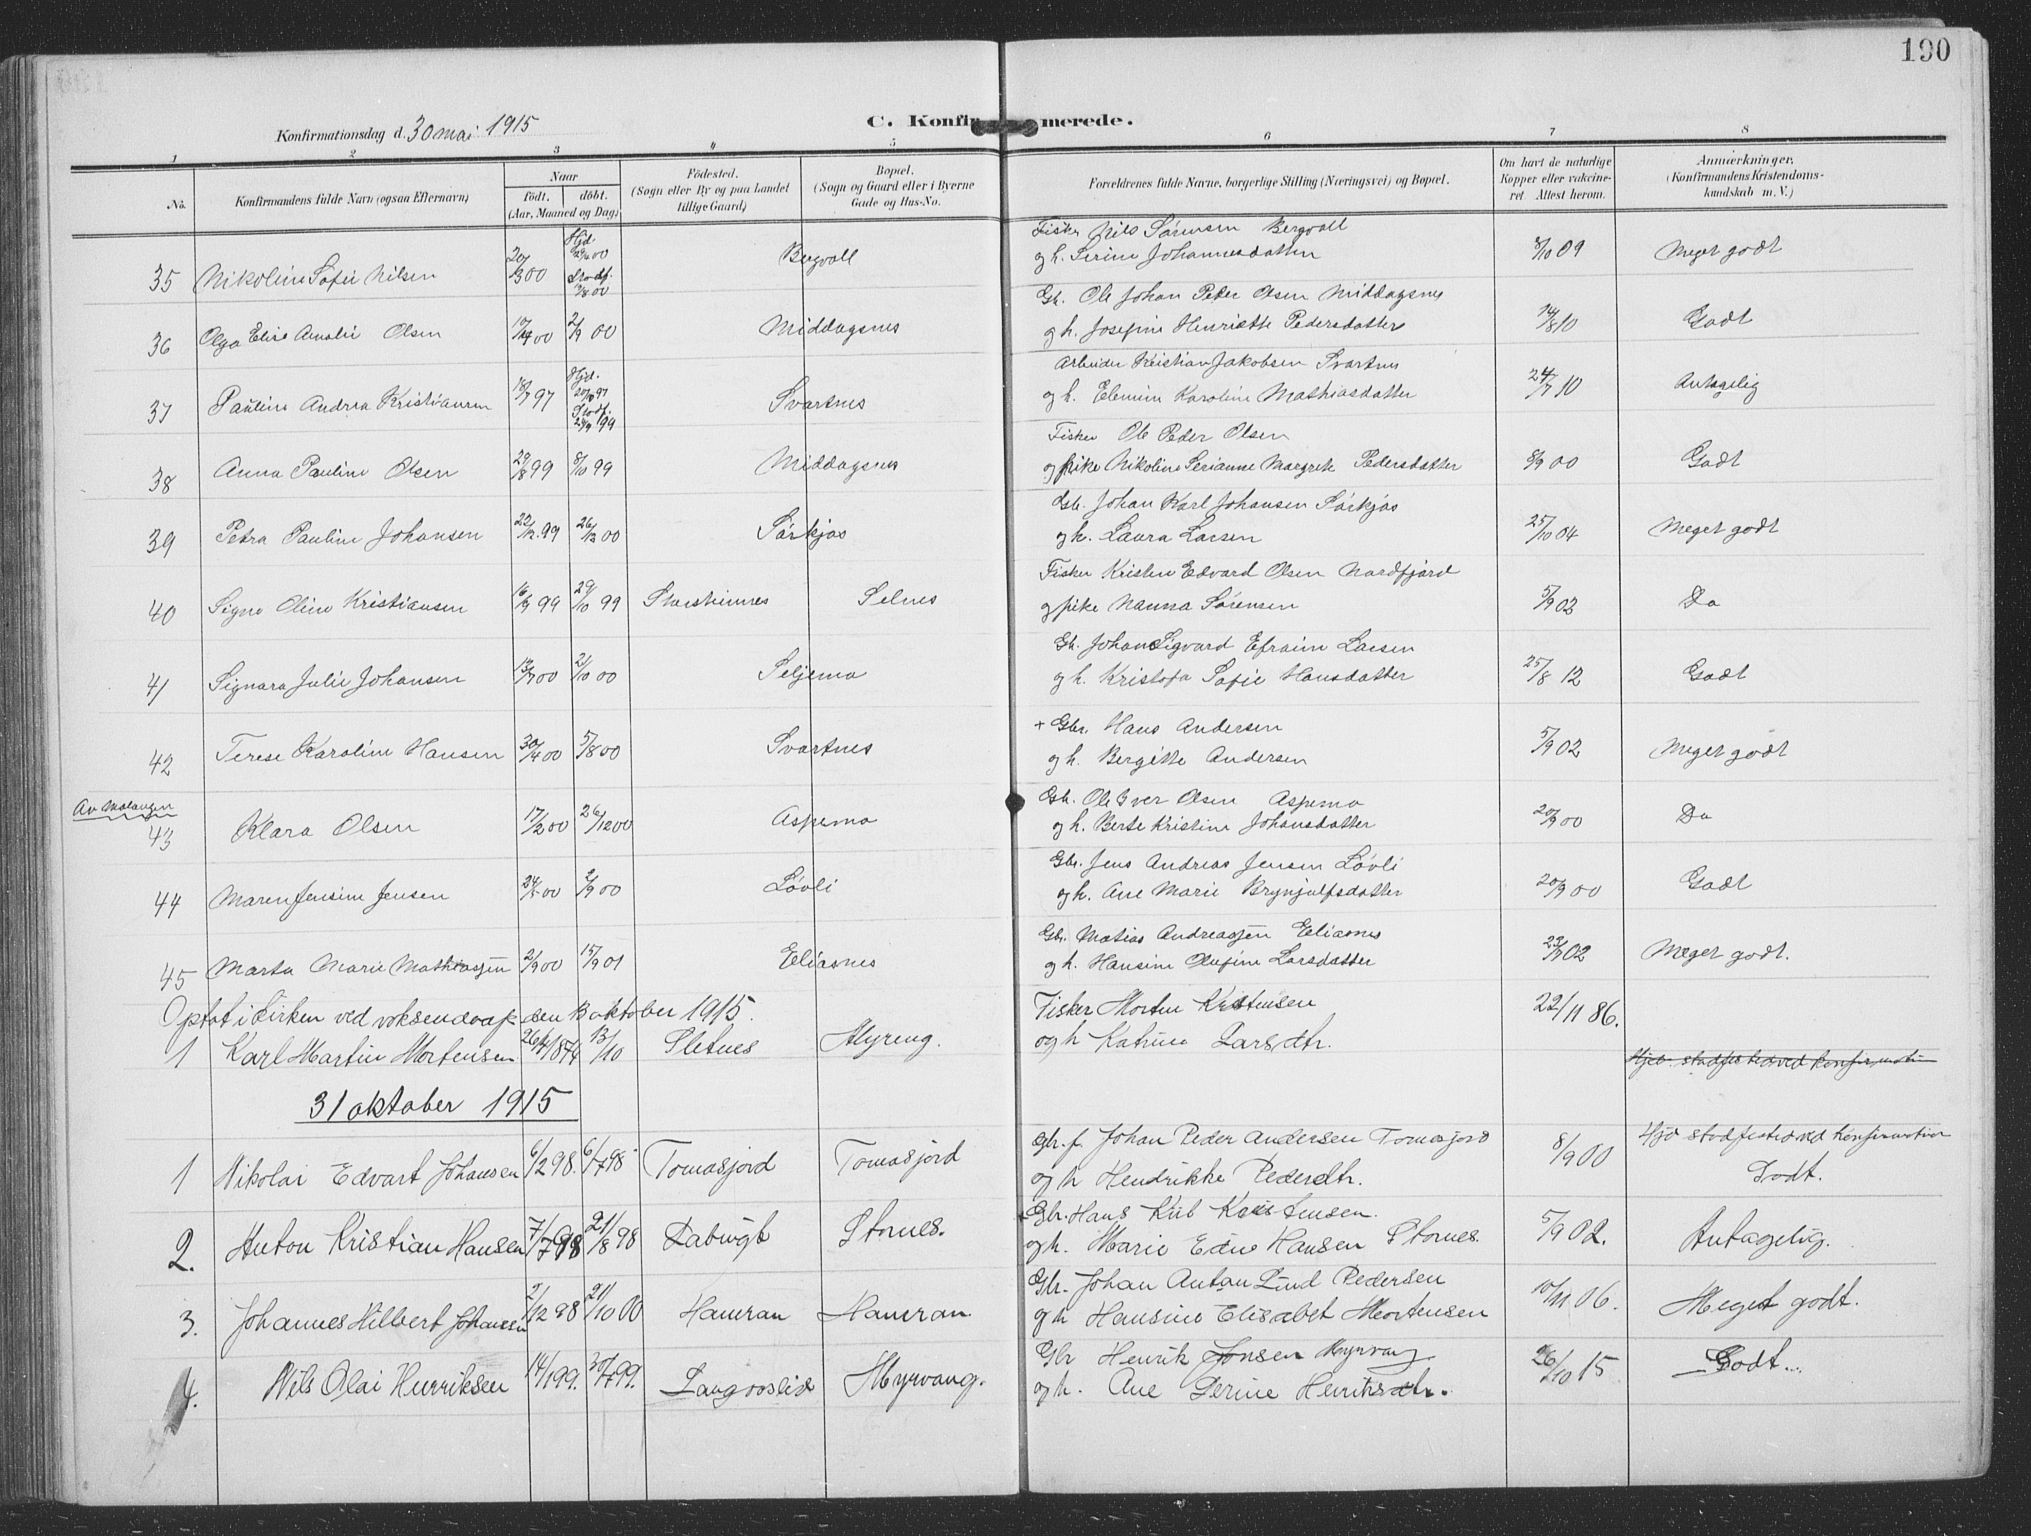 190
Konfirmationsdag d. 30 mai 1915
C. Konfirmerede.
1 2 3 4 5 6 7 8
No. Konfirmandens fulde Navn (ogsaa Efternavn)
Naar födt. döbt. (Aar, Maaned og Dag)
Födested. (Sogn eller By og paa Landet tillige Gaard)
Bopæl. (Sogn og Gaard eller i Byerne Gade og Hus-No.
Forældrenes fulde Navne, borgerlige Stilling (Næringsvei) og Bopæl.
Om havt de naturlige Kopper eller vakcineret. Attest herom.
Anmærkninger. (Konfirmandens Kristendomskundskab m. V.)
Fisker Nils Sørensen Bergvoll
35 Nikoline Sofie Nilsen 00 Hjd. 00 Stadf. 00 Bergvoll og h. Serine Johannesdatter 8/10 09 Meget godt
Gb. Ole Johan Peder Olsen Middagsnes
36 Olga Elise Amalie Olsen 00 2/9 00 Middagsnes og h. Josefine Henriette Pedersdatter 10 Godt
Arbeider Kristian Jakobsen Svartnes
37 Pauline Andrea Kristiansen 18/7 97 Hjd. 97 Stadf. 99 Svartnes og h. Elenine Karoline Mathiasdatter 24/7 10 Antagelig
Fisker Ole Peder Olsen
38 Anna Pauline Olsen 29/8 99 8/10 99 Middagsnes og pike Nikoline Serianne Margrete Pedersdatter 8/9 00 Godt
Gb. Johan Karl Johansen Sørkjos
39 Petra Pauline Johansen 22/12 99 26/12 00 Sørkjos og h. Laura Larsen 25/10 04 Meget godt
Fisker Kristen Edvard Olsen Nordfjord
40 Signe Oline Kristiansen 16/9 99 29/10 99 Storsteinnes Selnes og pike Nanna Sørensen 5/9 02 Do
Gb. Johan Sigvard Efraim Larsen
41 Signara Julie Johansen 13/7 00 21/10 00 Seljemo og h. Kristofa Sofie Hansdatter 25/8 12 Godt
+ Gbr. Hans Andersen
42 Terese Karoline Hansen 30/4 00 5/8 00 Svartnes og h. Bergitte Andersen 5/9 02 Meget godt
Av Malangen
Gb. Ole Iver Olsen Aspemo
43 Klara Olsen 17/2 00 26/12 00 Aspemo og h. Berte Kristine Johansdatter 20/9 00 Do
Gbr. Jens Andreas Jensen Løvli
44 Maren Jensine Jensen 24/5 00 2/9 00 Løvli og h. Ane Marie Brynjulfsdatter 20/9 00 Godt
Gbr. Matias Andreassen Eliasnes
45 Marta Marie Mathiassen 2/9 00 15/9 01 Eliasnes og h. Hansine Olufine Larsdatter 02 Meget godt.
Optat i kirken ved voksendaap den 13 oktober 1915.
Fisker Morten Kristensen 22/11 86.
1 Karl Martin Mortensen 1874 13/10 Sletnes Myreng. og h Katrine Larsdtr.
Hjed. stadfestet ved konfirmation
31 oktober 1915
Gbr. f. Johan Peder Andersen Tomasjord 8/9 00 Hjd stadfestet ved konfirmation
1 Nikolai Edvart Johansen 6/2 98. 6/7 98 Tomasjord Tomasjord og h Hendrikke Pedersdtr. Godt.
+ Gbr. Hans Kristensen.
2. Anton Kristian Hansen 7/7 98 21/8 98 Stornes. og h. Marie Edne Hansen Stornes. 5/9 02. Antagelig.
Gbr. Johan Anton Lind Pedersen
3. Johannes Hilbert Johansen 2/12 98 21/10 00 Hamran Hamran og h Hansine Elisabet Mortensen 10/11 06. Meget godt.
Gbr Henrik Jonsen Myrvang
4. Nils Olai Henriksen 14/1 99. 30/7 99. Myrvang. og h. Ane Serine Henriksdtr. 26/10 15 Godt.